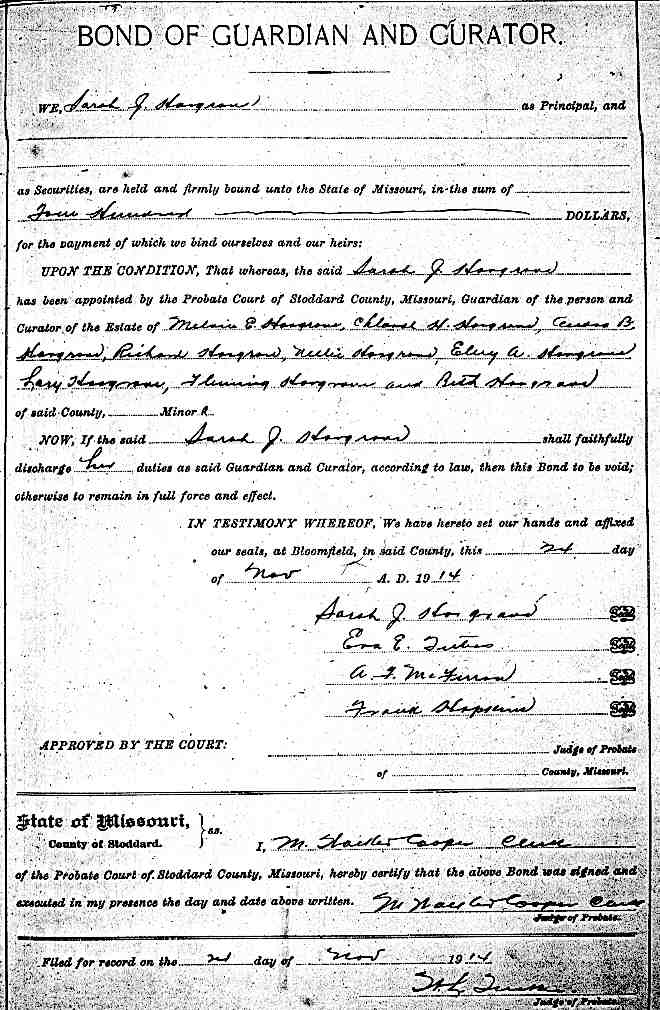 BOND OF GUARDIAN AND CURATOR.
WE, Sarah J. Hargrove as Principal, and
as Securities, are held and firmly bound unto the State of Missouri, in the sum of
Four Hundred DOLLARS,
for the payment of which we bind ourselves and our heirs:
UPON THE CONDITION, That whereas, the said Sarah J. Hargrove
has been appointed by the Probate Court of Stoddard County, Missouri, Guardian of the person and
Curator of the Estate of E. Hargrove, H. Hargrove, B.
Hargrove, Richard Hargrove, Nellie Hargrove, A. Hargrove
Hargrove, Fleming Hargrove and Ruth Hargrove
of said County, Minor s
NOW, If the said Sarah J. Hargrove shall faithfully
discharge her duties as said Guardian and Curator, according to law, then this Bond to be void;
otherwise to remain in full force and effect.
IN TESTIMONY WHEREOF, We have hereto set our hands and affixed
our seals, at Bloomfield, in said County, this 24 day
of Nov A. D. 1914
Sarah J. Hargrove Seal
Eva E. Seal
A. F. Seal
Frank Hopkins Seal
APPROVED BY THE COURT: Judge of Probate
of County, Missouri.
State of Missouri, } ss.
County of Stoddard. I, M. Cooper Clerk
of the Probate Court of Stoddard County, Missouri, hereby certify that the above Bond was signed and
executed in my presence the day and date above written. M Cooper Clerk
Judge of Probate.
Filed for record on the 24 day of Nov 1914
Judge of Probate.